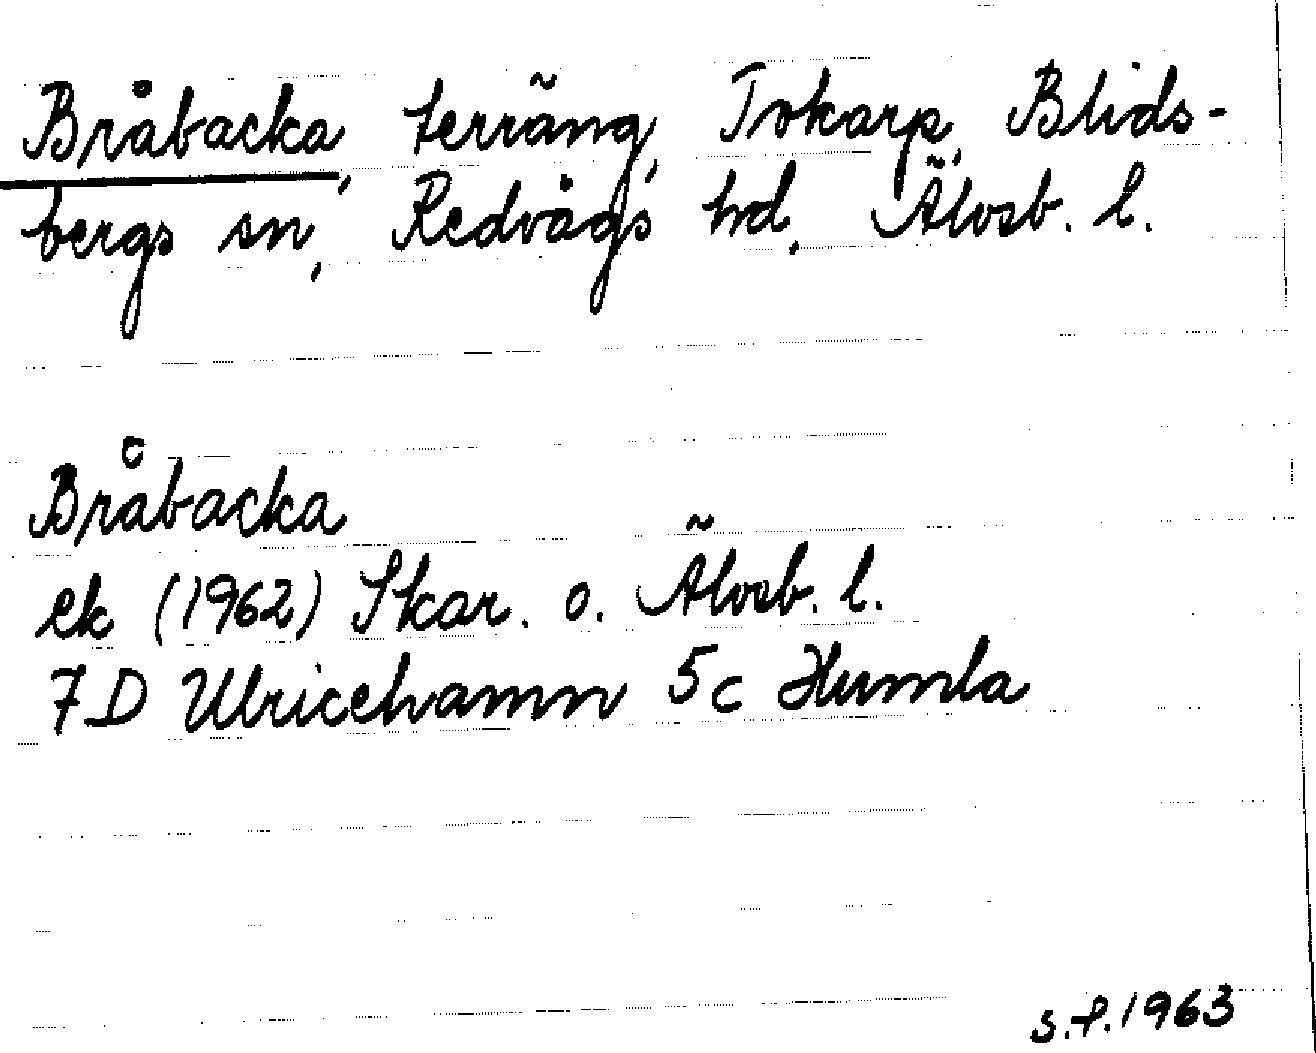 Bråbacka, terräng, Tokarp, Blids-
bergs sn, Redvägs hd, Älvsb. l.
Bråbacka
ek (1962) Skar. o. Älvsb. l.
7D Ulricehamn 5c Humla
s.f. 1963